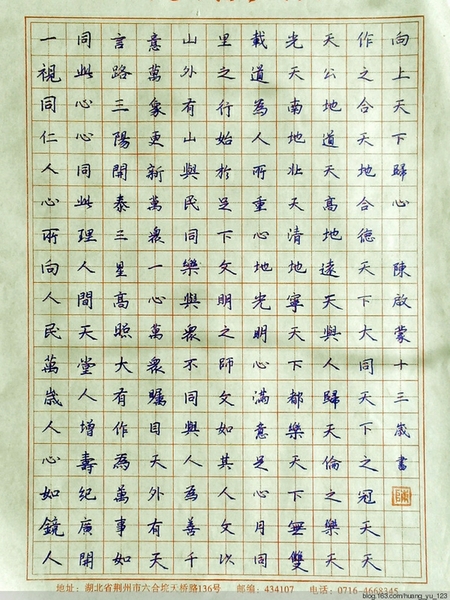 向上天下歸心 陳啟蒙十三歲書
作之合天地合德天下大同天下之冠天天
天公地道天高地遠天與人歸天倫之樂天
光天南地壯天清地寧天下都樂天下無雙
載道為人所重心地光明心滿意足心月同
里之行始於足下文明之師文如其人文以
山外有山與民同樂與衆不同與人為善千
意萬象更新萬衆一心萬衆矚目天外有天
言路三陽開泰三星高照大有作為萬事如
同此心心同此理人間天堂人增壽紀廣開
一視同仁人心所向人民萬歲人心如鏡人
地址：湖北省荆州市六合垸天桥路136号 邮编：434107 电话：0716-4668345
blog.163.com/huang_yu_123